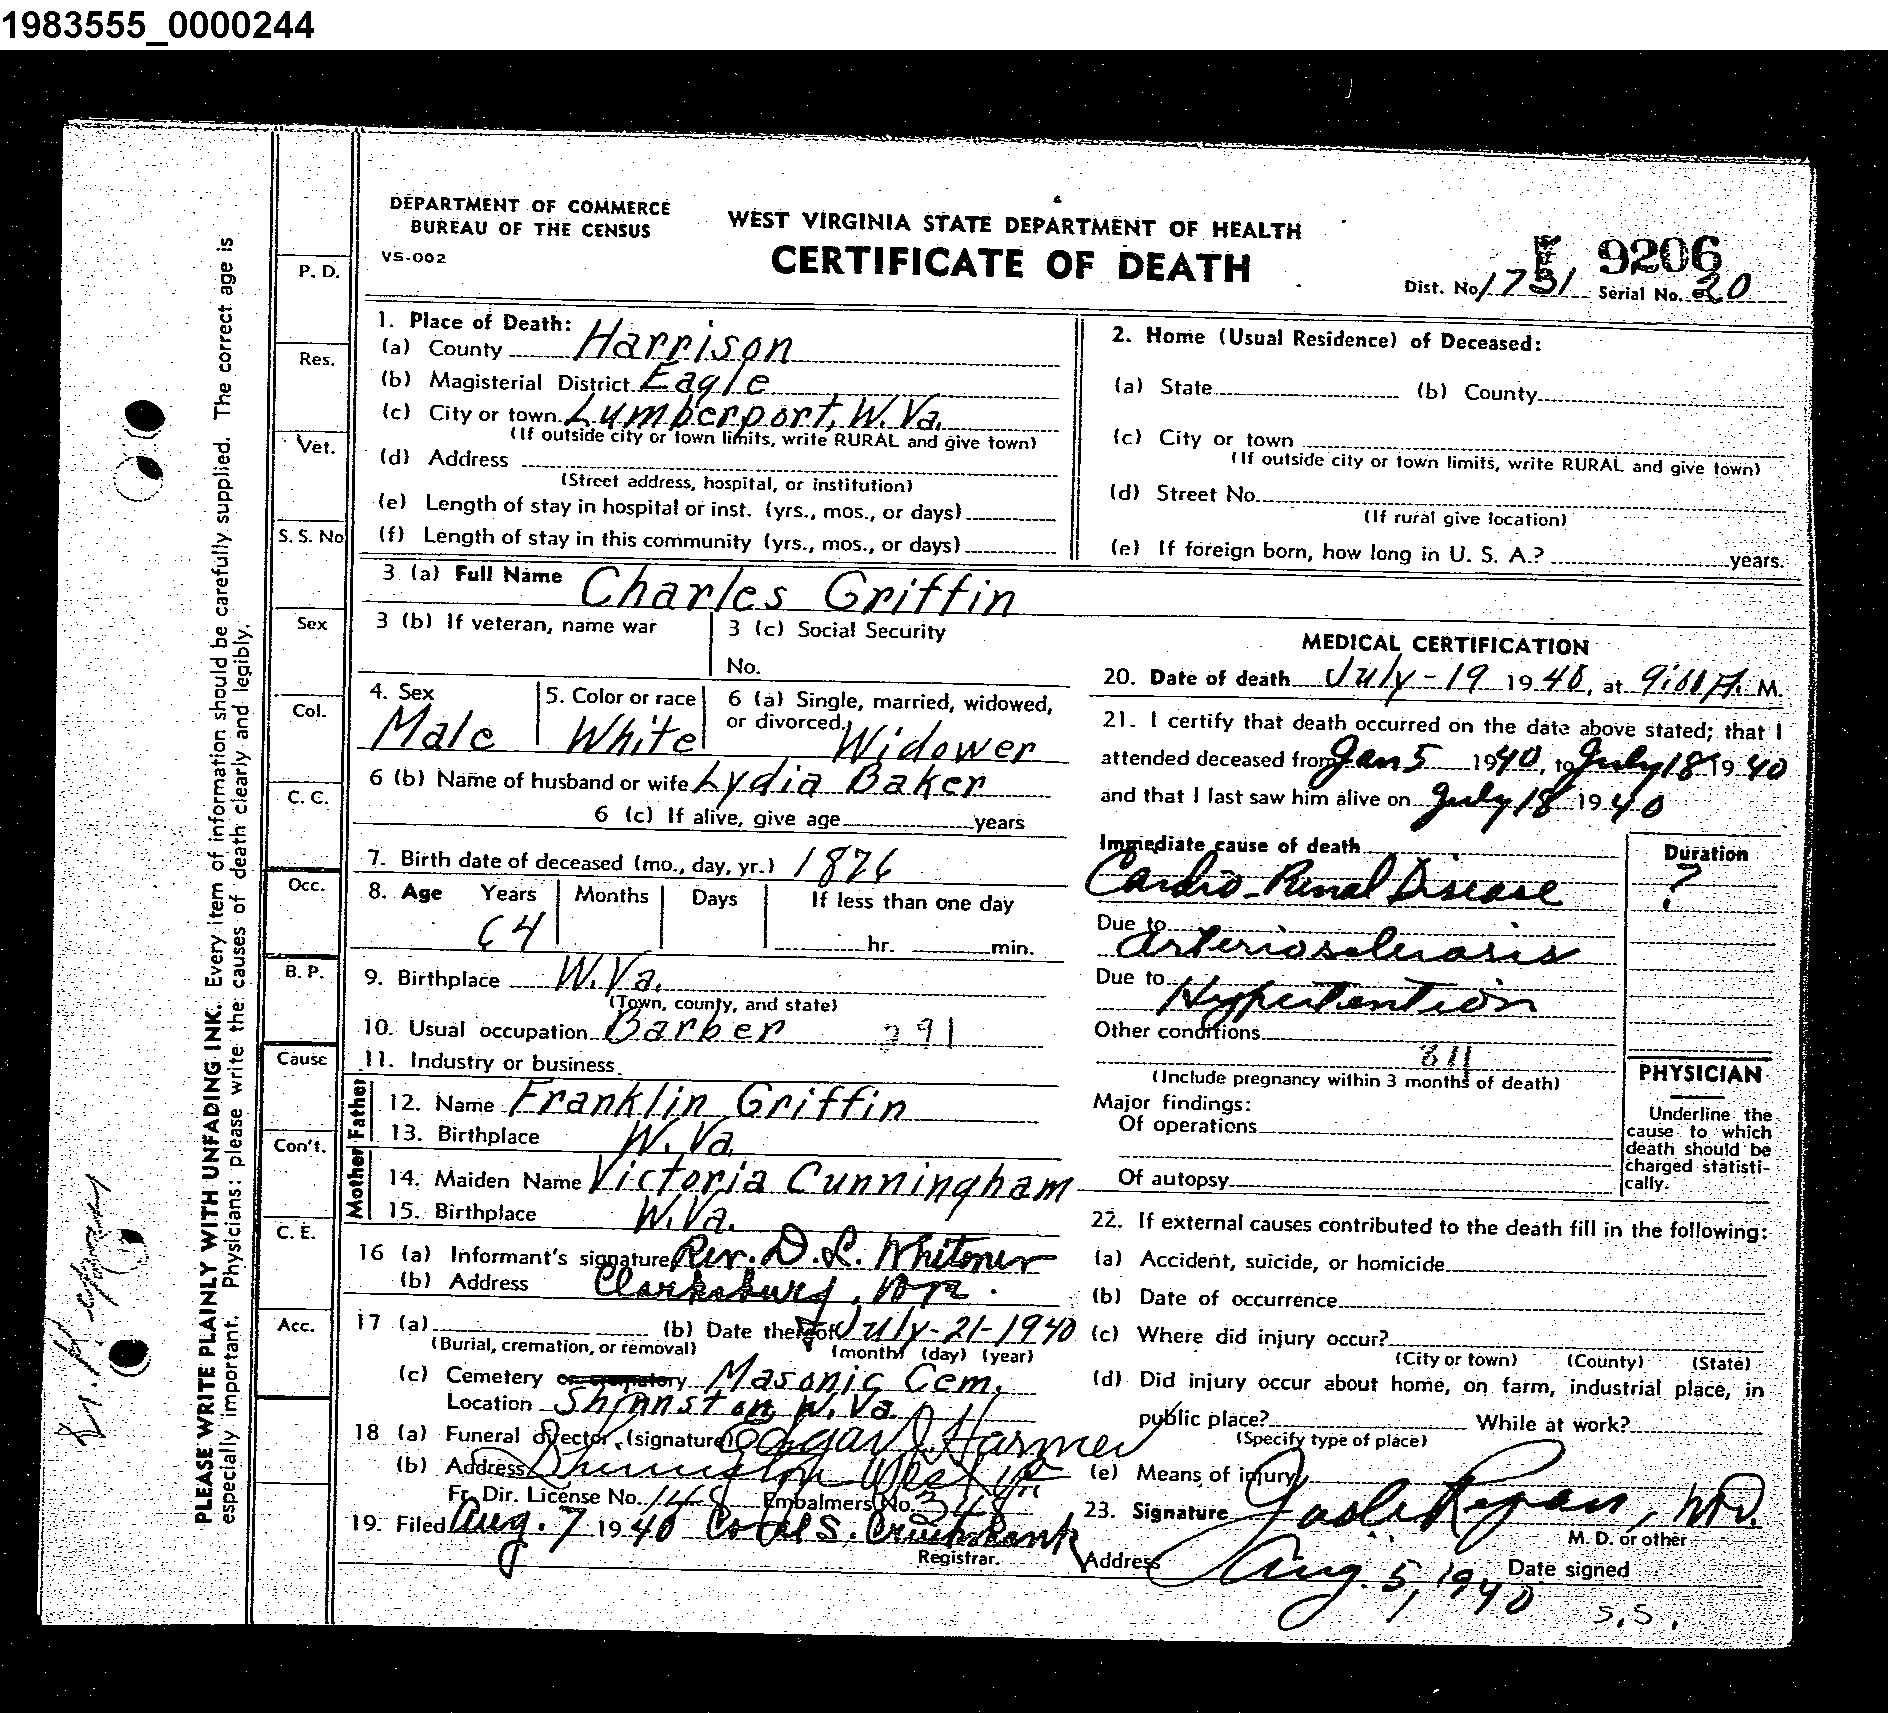 1983555_0000244
DEPARTMENT OF COMMERCE
BUREAU OF THE CENSUS
VS-002
WEST VIRGINIA STATE DEPARTMENT OF HEALTH
CERTIFICATE OF DEATH
9206
Dist. No. 1731 Serial No. 20
1. Place of Death:
(a) County Harrison
(b) Magisterial District Eagle
(c) City or town Lumberport, W. Va.
(If outside city or town limits, write RURAL and give town)
(d) Address
(Street address, hospital, or institution)
(e) Length of stay in hospital or inst. (yrs., mos., or days)
(f) Length of stay in this community (yrs., mos., or days)
2. Home (Usual Residence) of Deceased:
(a) State (b) County
(c) City or town
(If outside city or town limits, write RURAL and give town)
(d) Street No.
(If rural give location)
(e) If foreign born, how long in U. S. A.? years.
3 (a) Full Name Charles Griffin
3 (b) If veteran, name war
3 (c) Social Security
No.
4. Sex
Male
5. Color or race
White
6 (a) Single, married, widowed,
or divorced. Widower
6 (b) Name of husband or wife Lydia Baker
6 (c) If alive, give age years
7. Birth date of deceased (mo., day, yr.) 1876
8. Age Years Months Days If less than one day
64 hr. min.
9. Birthplace W. Va.
(Town, county, and state)
10. Usual occupation Barber 391
11. Industry or business
Father
12. Name Franklin Griffin
13. Birthplace W. Va.
Mother
14. Maiden Name Victoria Cunningham
15. Birthplace W. Va.
16 (a) Informant's signature Rev. D. L. Whitener
(b) Address Clarksburg, W Va.
17 (a) (b) Date thereof July-21-1940
(Burial, cremation, or removal) (month) (day) (year)
(c) Cemetery or crematory Masonic Cem.
Location Shinnston W. Va.
18 (a) Funeral director (signature) Edgar J. Harmer
(b) Address Shinnston West Va
Fr. Dir. License No. 148 Embalmers No. 348
19. Filed Aug. 7 1940 S. Cruikshank
Registrar.
MEDICAL CERTIFICATION
20. Date of death July-19 1940, at 9:00 A. M.
21. I certify that death occurred on the date above stated; that I
attended deceased from Jan 5 1940, to July 18 1940
and that I last saw him alive on July 18 1940
Immediate cause of death
Cardio-Renal Disease
Due to
arteriosclerosis
Due to
Hypertention
Other conditions
(Include pregnancy within 3 months of death)
Major findings:
Of operations
Of autopsy
Duration
?
PHYSICIAN
Underline the
cause to which
death should be
charged statisti-
cally.
22. If external causes contributed to the death fill in the following:
(a) Accident, suicide, or homicide
(b) Date of occurrence
(c) Where did injury occur?
(City or town) (County) (State)
(d) Did injury occur about home, on farm, industrial place, in
public place? While at work?
(Specify type of place)
(e) Means of injury
23. Signature M.D.
M. D. or other
Address Date signed
Aug. 5, 1940
S.S.
P. D.
Res.
Vet.
S. S. No
Sex
Col.
C. C.
Occ.
B. P.
Cause
Con't.
C. E.
Acc.
PLEASE WRITE PLAINLY WITH UNFADING INK. Every item of information should be carefully supplied. The correct age is
especially important. Physicians: please write the causes of death clearly and legibly.